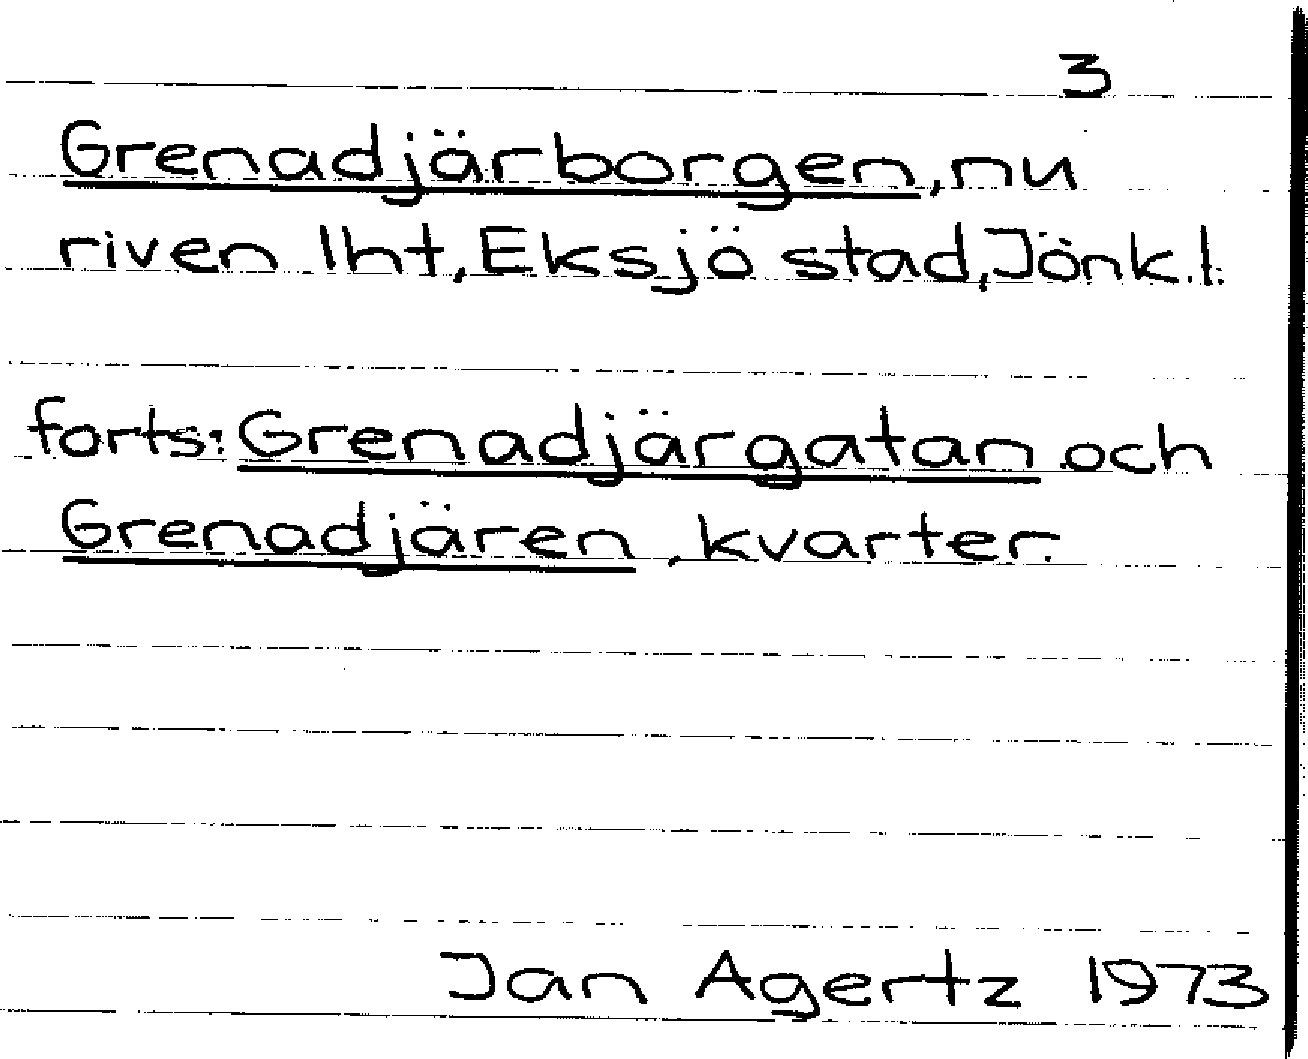 3
Grenadjärborgen, nu
riven lht, Eksjö stad, Jönk.l.
forts: Grenadjärgatan och
Grenadjären, kvarter.
Jan Agertz 1973